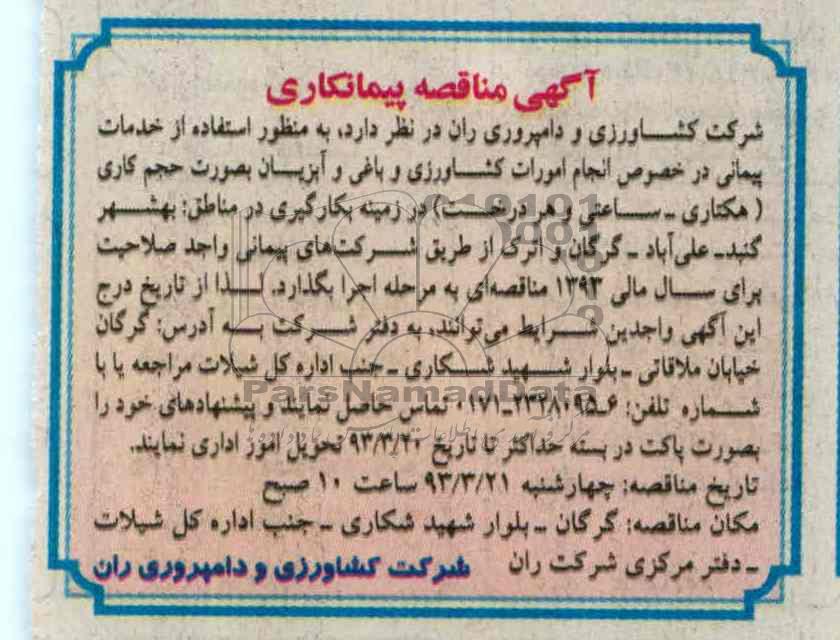 آگهی مناقصه پیمانکاری
شرکت کشاورزی و دامپروری ران در نظر دارد، به منظور استفاده از خدمات
پیمانی در خصوص انجام امورات کشاورزی و باغی و آبزیان بصورت حجم کاری
( هکتاری ـ ساعتی و هر درخت) در زمینه بکارگیری در مناطق: بهشهر
گنبدـ علی‌آباد ـ گرگان و اترک از طریق شرکت‌های پیمانی واجد صلاحیت
برای سال مالی ۱۳۹۳ مناقصه‌ای به مرحله اجرا بگذارد. لذا از تاریخ درج
این آگهی واجدین شرایط می‌توانند، به دفتر شرکت به آدرس: گرگان
خیابان ملاقاتی ـ بلوار شهید شکاری ـ جنب اداره کل شیلات مراجعه یا با
شماره تلفن: ۶ـ۲۲۲۸۰۹۵ـ۰۱۷۱ تماس حاصل نمایند و پیشنهادهای خود را
بصورت پاکت در بسته حداکثر تا تاریخ ۹۳/۳/۲۰ تحویل امور اداری نمایند.
تاریخ مناقصه: چهارشنبه ۹۳/۳/۲۱ ساعت ۱۰ صبح
مکان مناقصه: گرگان ـ بلوار شهید شکاری ـ جنب اداره کل شیلات
ـ دفتر مرکزی شرکت ران شرکت کشاورزی و دامپروری ران
ParsNamadData